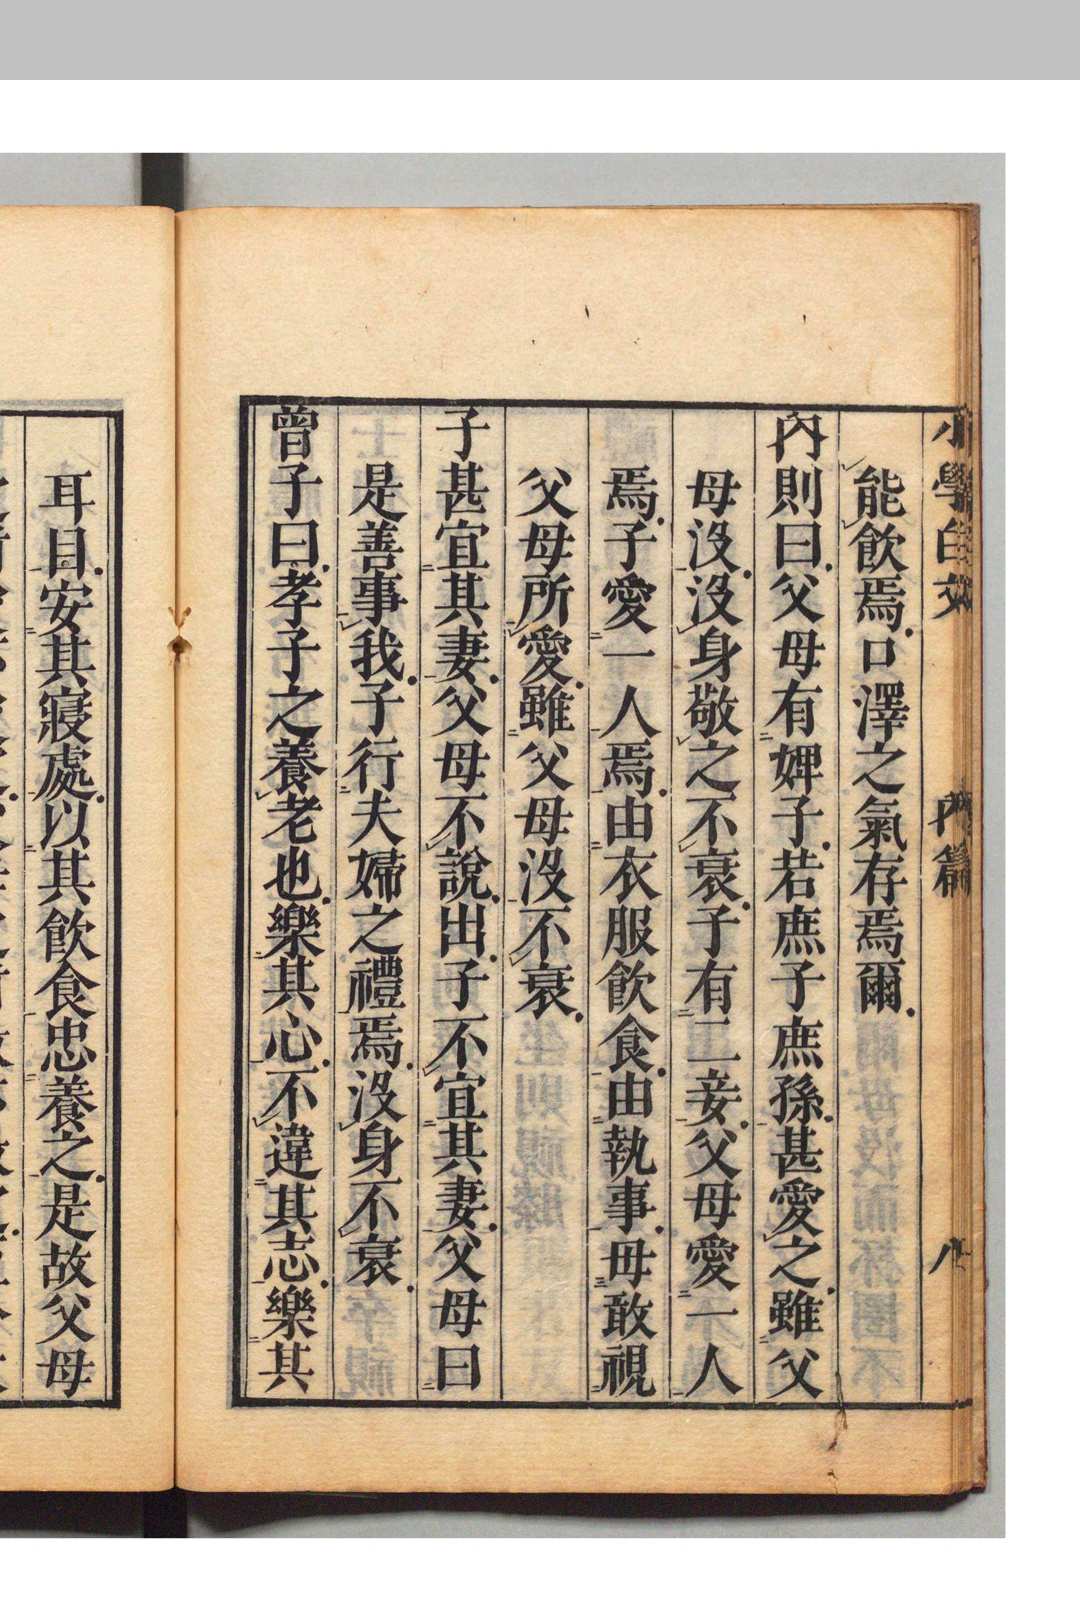 小學白文 內篇 八
能飲焉。口澤之氣存焉爾。
內則曰。父母有婢子。若庶子庶孫。甚愛之。雖父
母没。没身敬之不衰。子有二妾。父母愛一人
焉。子愛一人焉。由衣服飲食。由執事。毋敢視
父母所愛。雖父母没不衰。
子甚宜其妻。父母不說。出。子不宜其妻。父母曰
是善事我。子行夫婦之禮焉。没身不衰。
曾子曰。孝子之養老也。樂其心。不違其志。樂其
耳目。安其寢處。以其飲食忠養之。是故父母